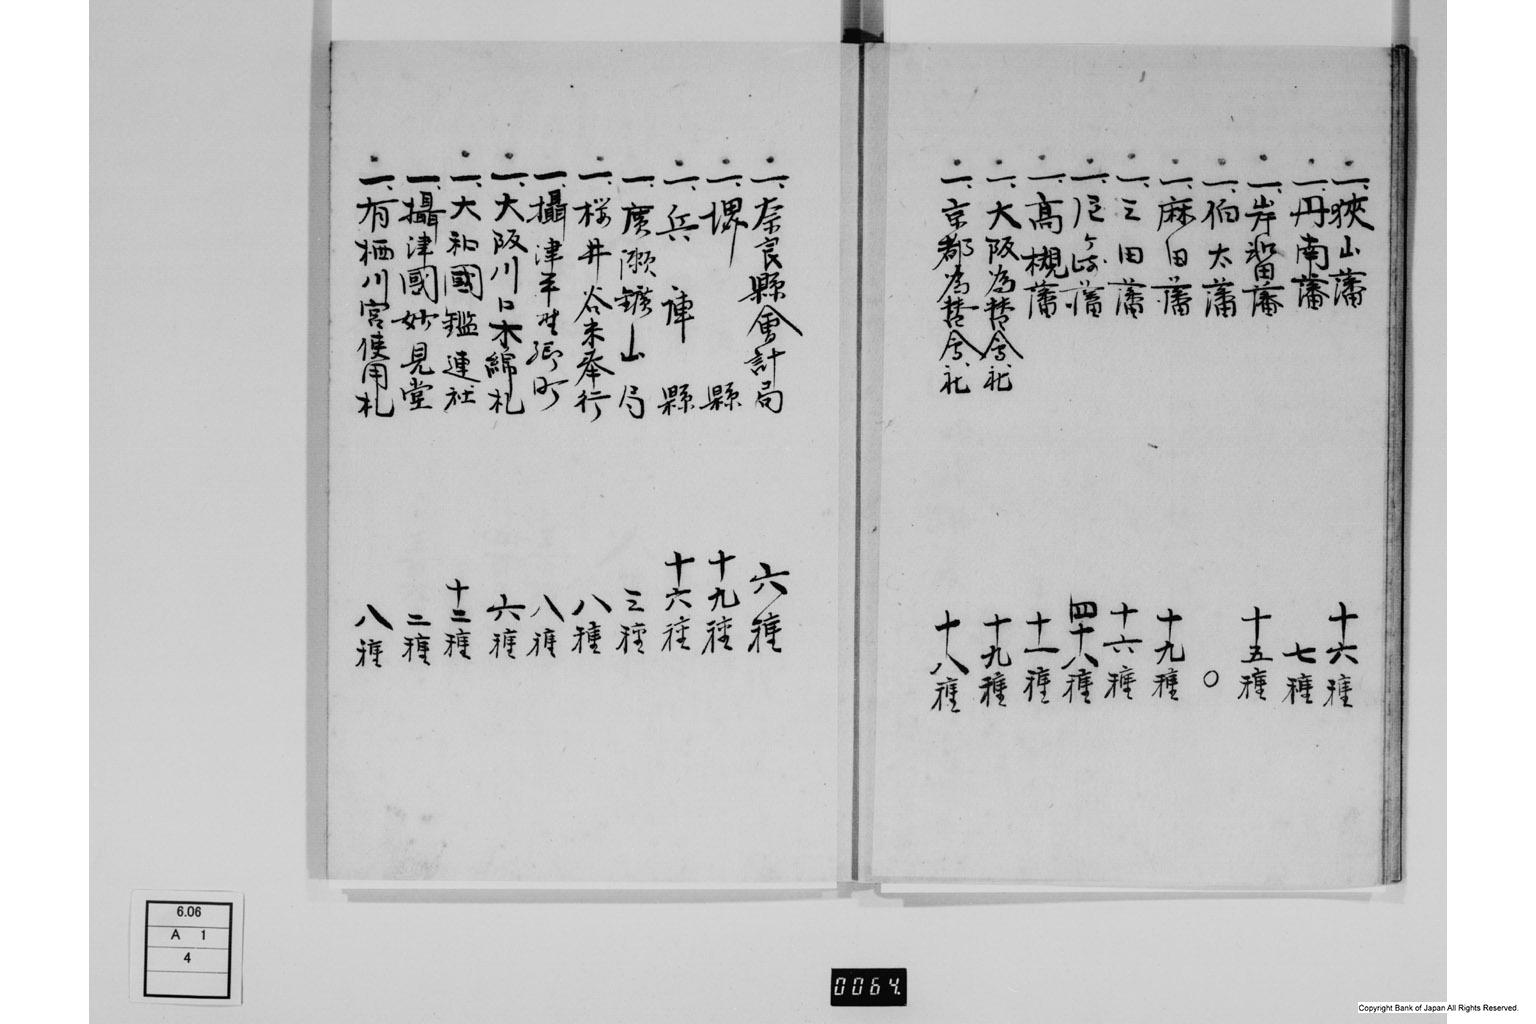 一、狹山藩 十六種
一、丹南藩 七種
一、岸和田藩 十五種
一、伯太藩 〇
一、麻田藩 十九種
一、三田藩 十六種
一、尼ヶ崎藩 四十八種
一、高槻藩 十一種
一、大阪為替會社 十九種
一、京都為替會社 十八種
一、奈良縣會計局 六種
一、堺縣 十九種
一、兵庫縣 十六種
一、廣瀬鑛山局 三種
一、桜井谷米奉行 八種
一、攝津平野郷町 八種
一、大阪川口木綿札 六種
一、大和國鑑連社 十二種
一、攝津國妙見堂 二種
一、有栖川宮使用札 八種
6.06
A 1
4
0064.
Copyright Bank of Japan All Rights Reserved.